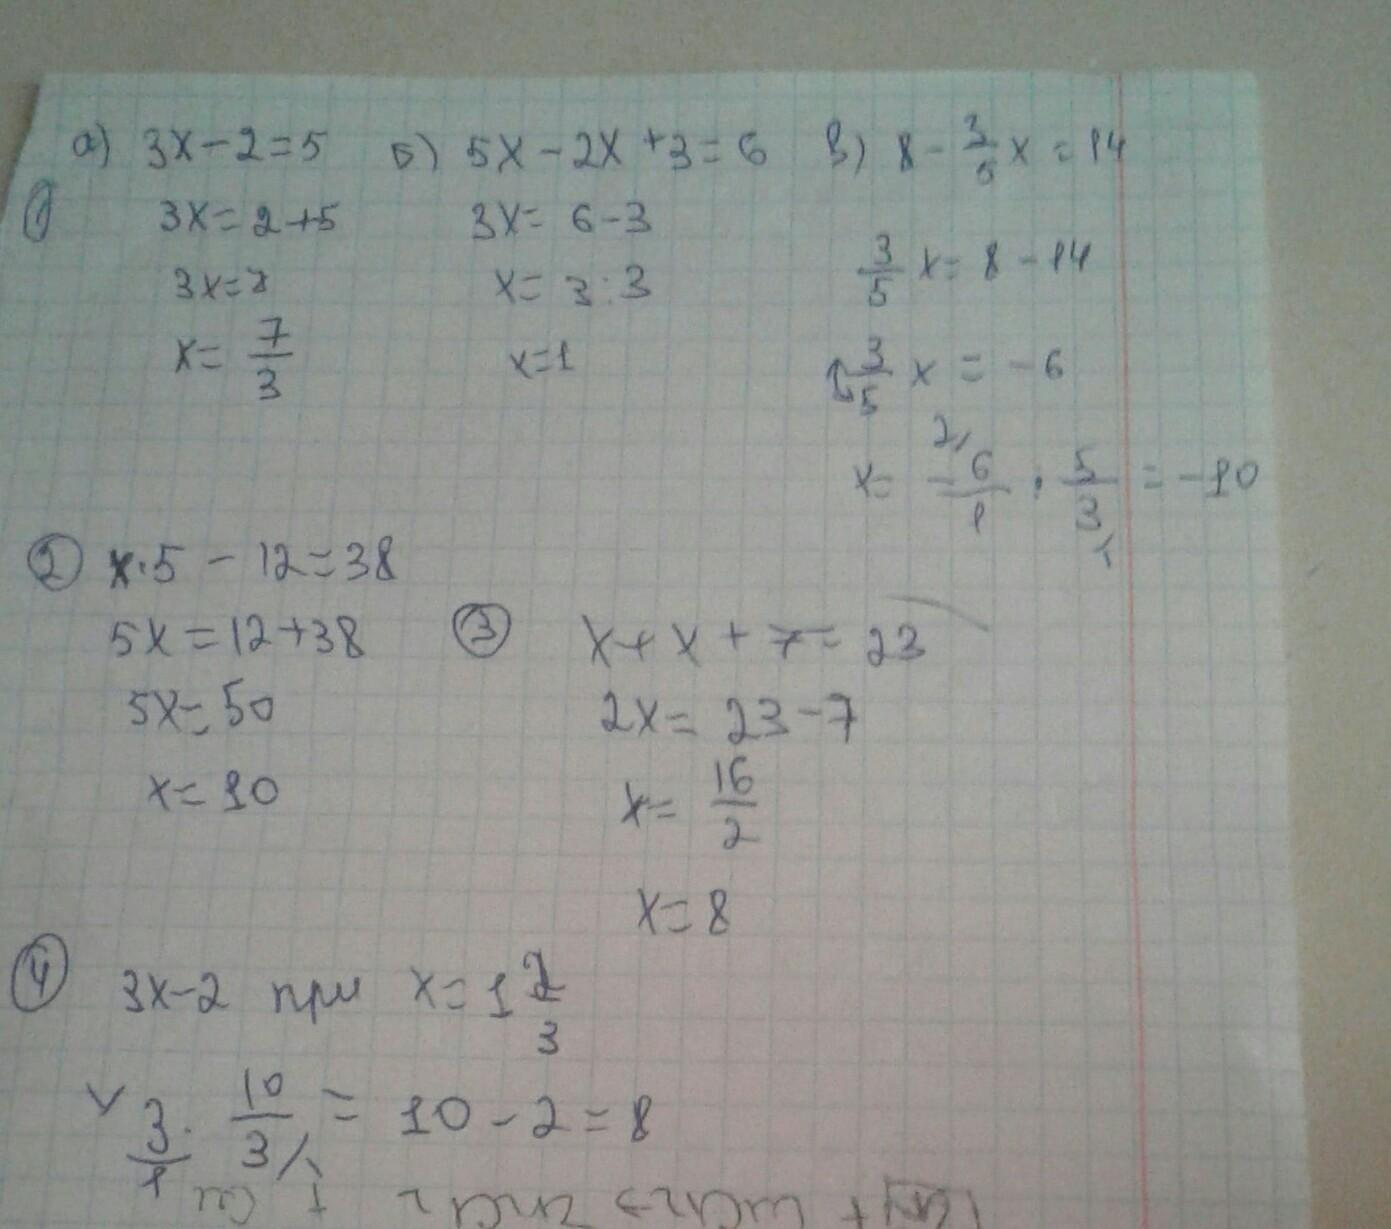 а) 3x-2=5 Б) 5x-2x+3=6 В) 8-3/5x=14
① 3x=2+5 3x=6-3 3/5 x=8-14
3x=7 x=3:3 3/5 x=-6
x=7/3 x=1 x=-6/1·5/3=-10
2
② x·5-12=38
5x=12+38
5x=50
x=10
③ x+x+7=23
2x=23-7
x=16/2
x=8
④ 3x-2 при x=1 2/3
3/1·10/3=10-2=8